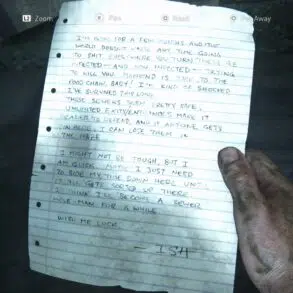 Zoom Flip Read Put Away
I'M GONE FOR A FEW MONTHS AND THE
WORLD DOESN'T WASTE ANY TIME GOING
TO SHIT. EVERYWHERE YOU TURN THERE'S
INFECTED — AND NON INFECTED — TRYING
TO KILL YOU.
FOOD CHAIN, BABY! I'M KIND OF SHOCKED
I'VE SURVIVED THIS LONG.
THESE SEWERS SEEM PRETTY SAFE.
LIMITED EXITS/ENTRANCES MAKE IT
EASIER TO DEFEND, AND IF ANYONE GETS
IN HERE, I CAN LOSE THEM IN
THE MAZE.
I MIGHT NOT BE TOUGH, BUT I
AM QUICK. I JUST NEED
TO BIDE MY TIME DOWN HERE UNTIL
IT ALL GETS SORTED UP THERE.
I THINK I'LL BECOME A SEWER
MOLE-MAN FOR A WHILE.
WISH ME LUCK.
— ISH